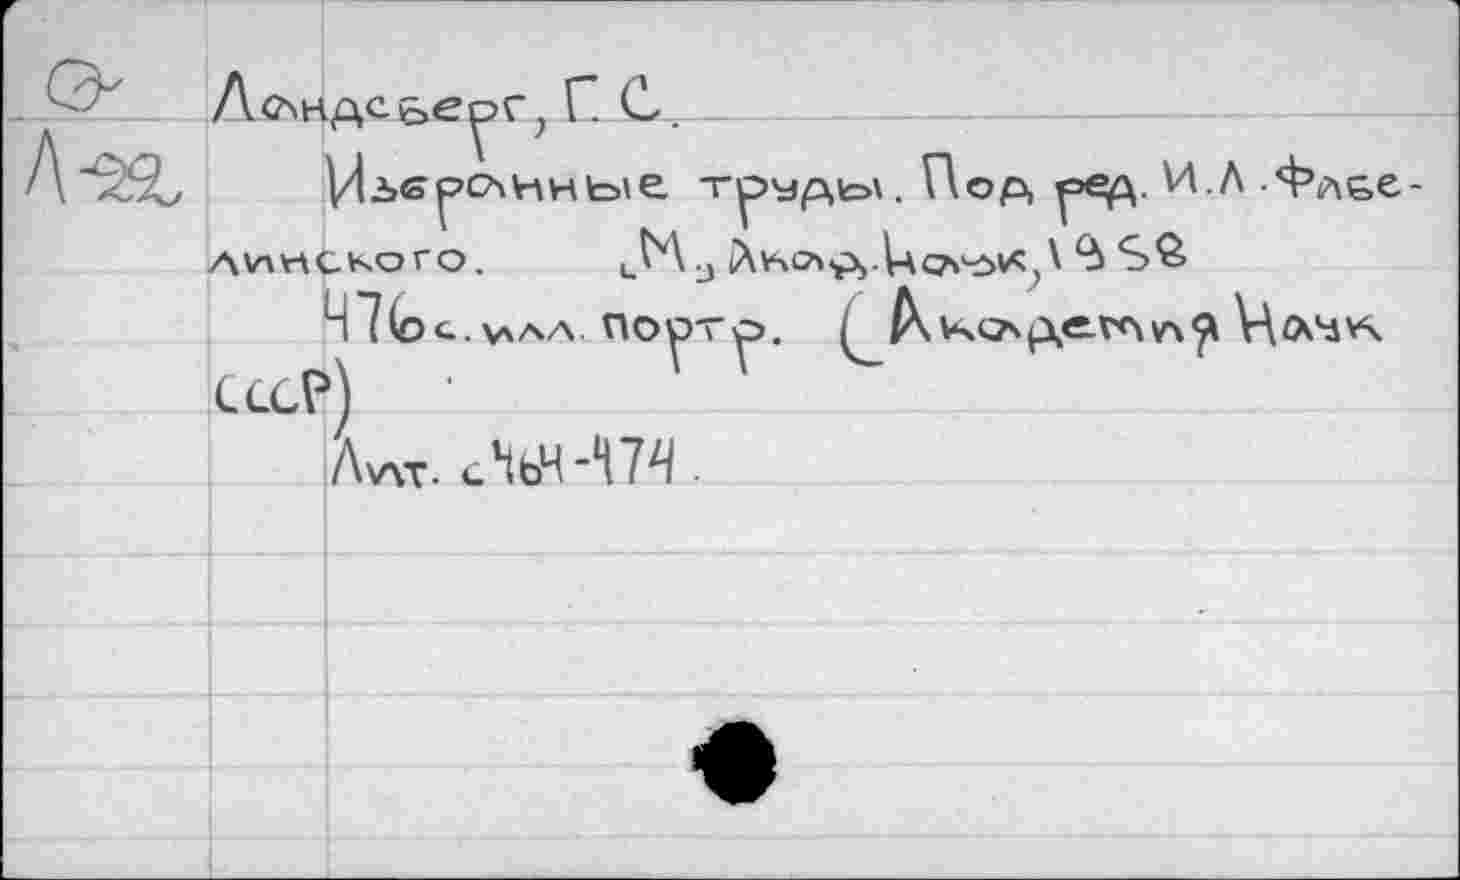 Э Ландсберг, Г. С.
Л-22 Избранные труды. Под ред. И.Л. Фабе-
линского. М., Акад. Наук, 1958
476 с. илл. портр. (Академия Наук
СССР)
Лит. с 464-474.